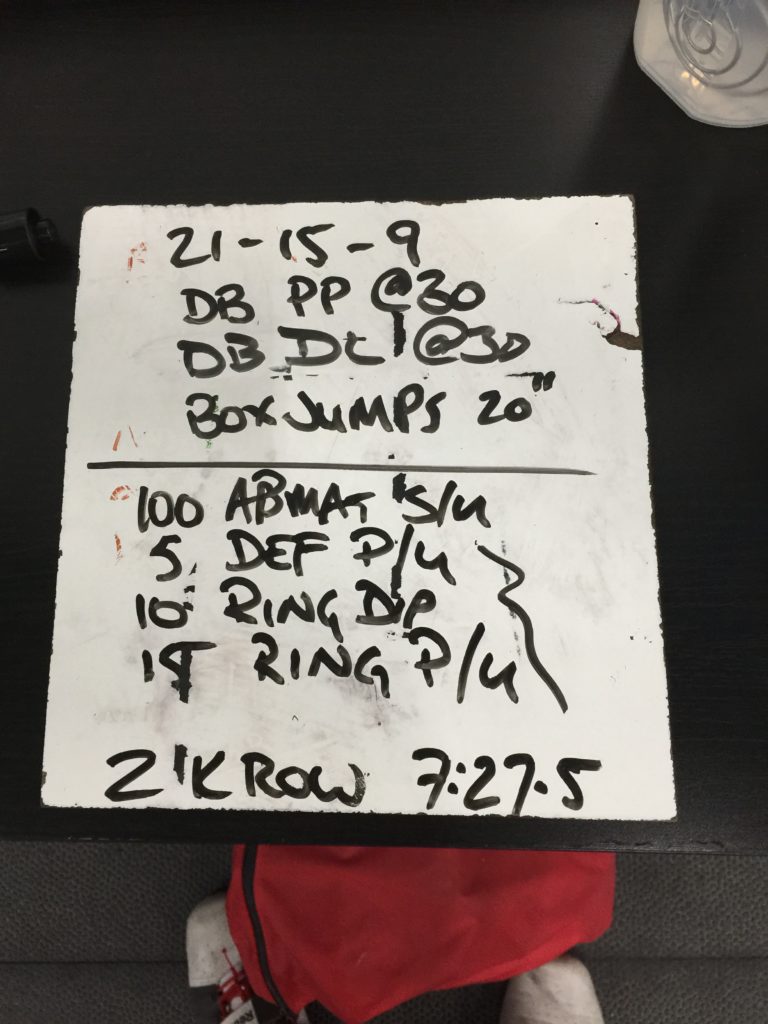 21-15-9
DB PP @30
DB DL @30
BOX JUMPS 20"
100 ABMAT S/U
5 DEF P/U
10 RING DIP
15 RING P/U
2'K ROW 7:27.5